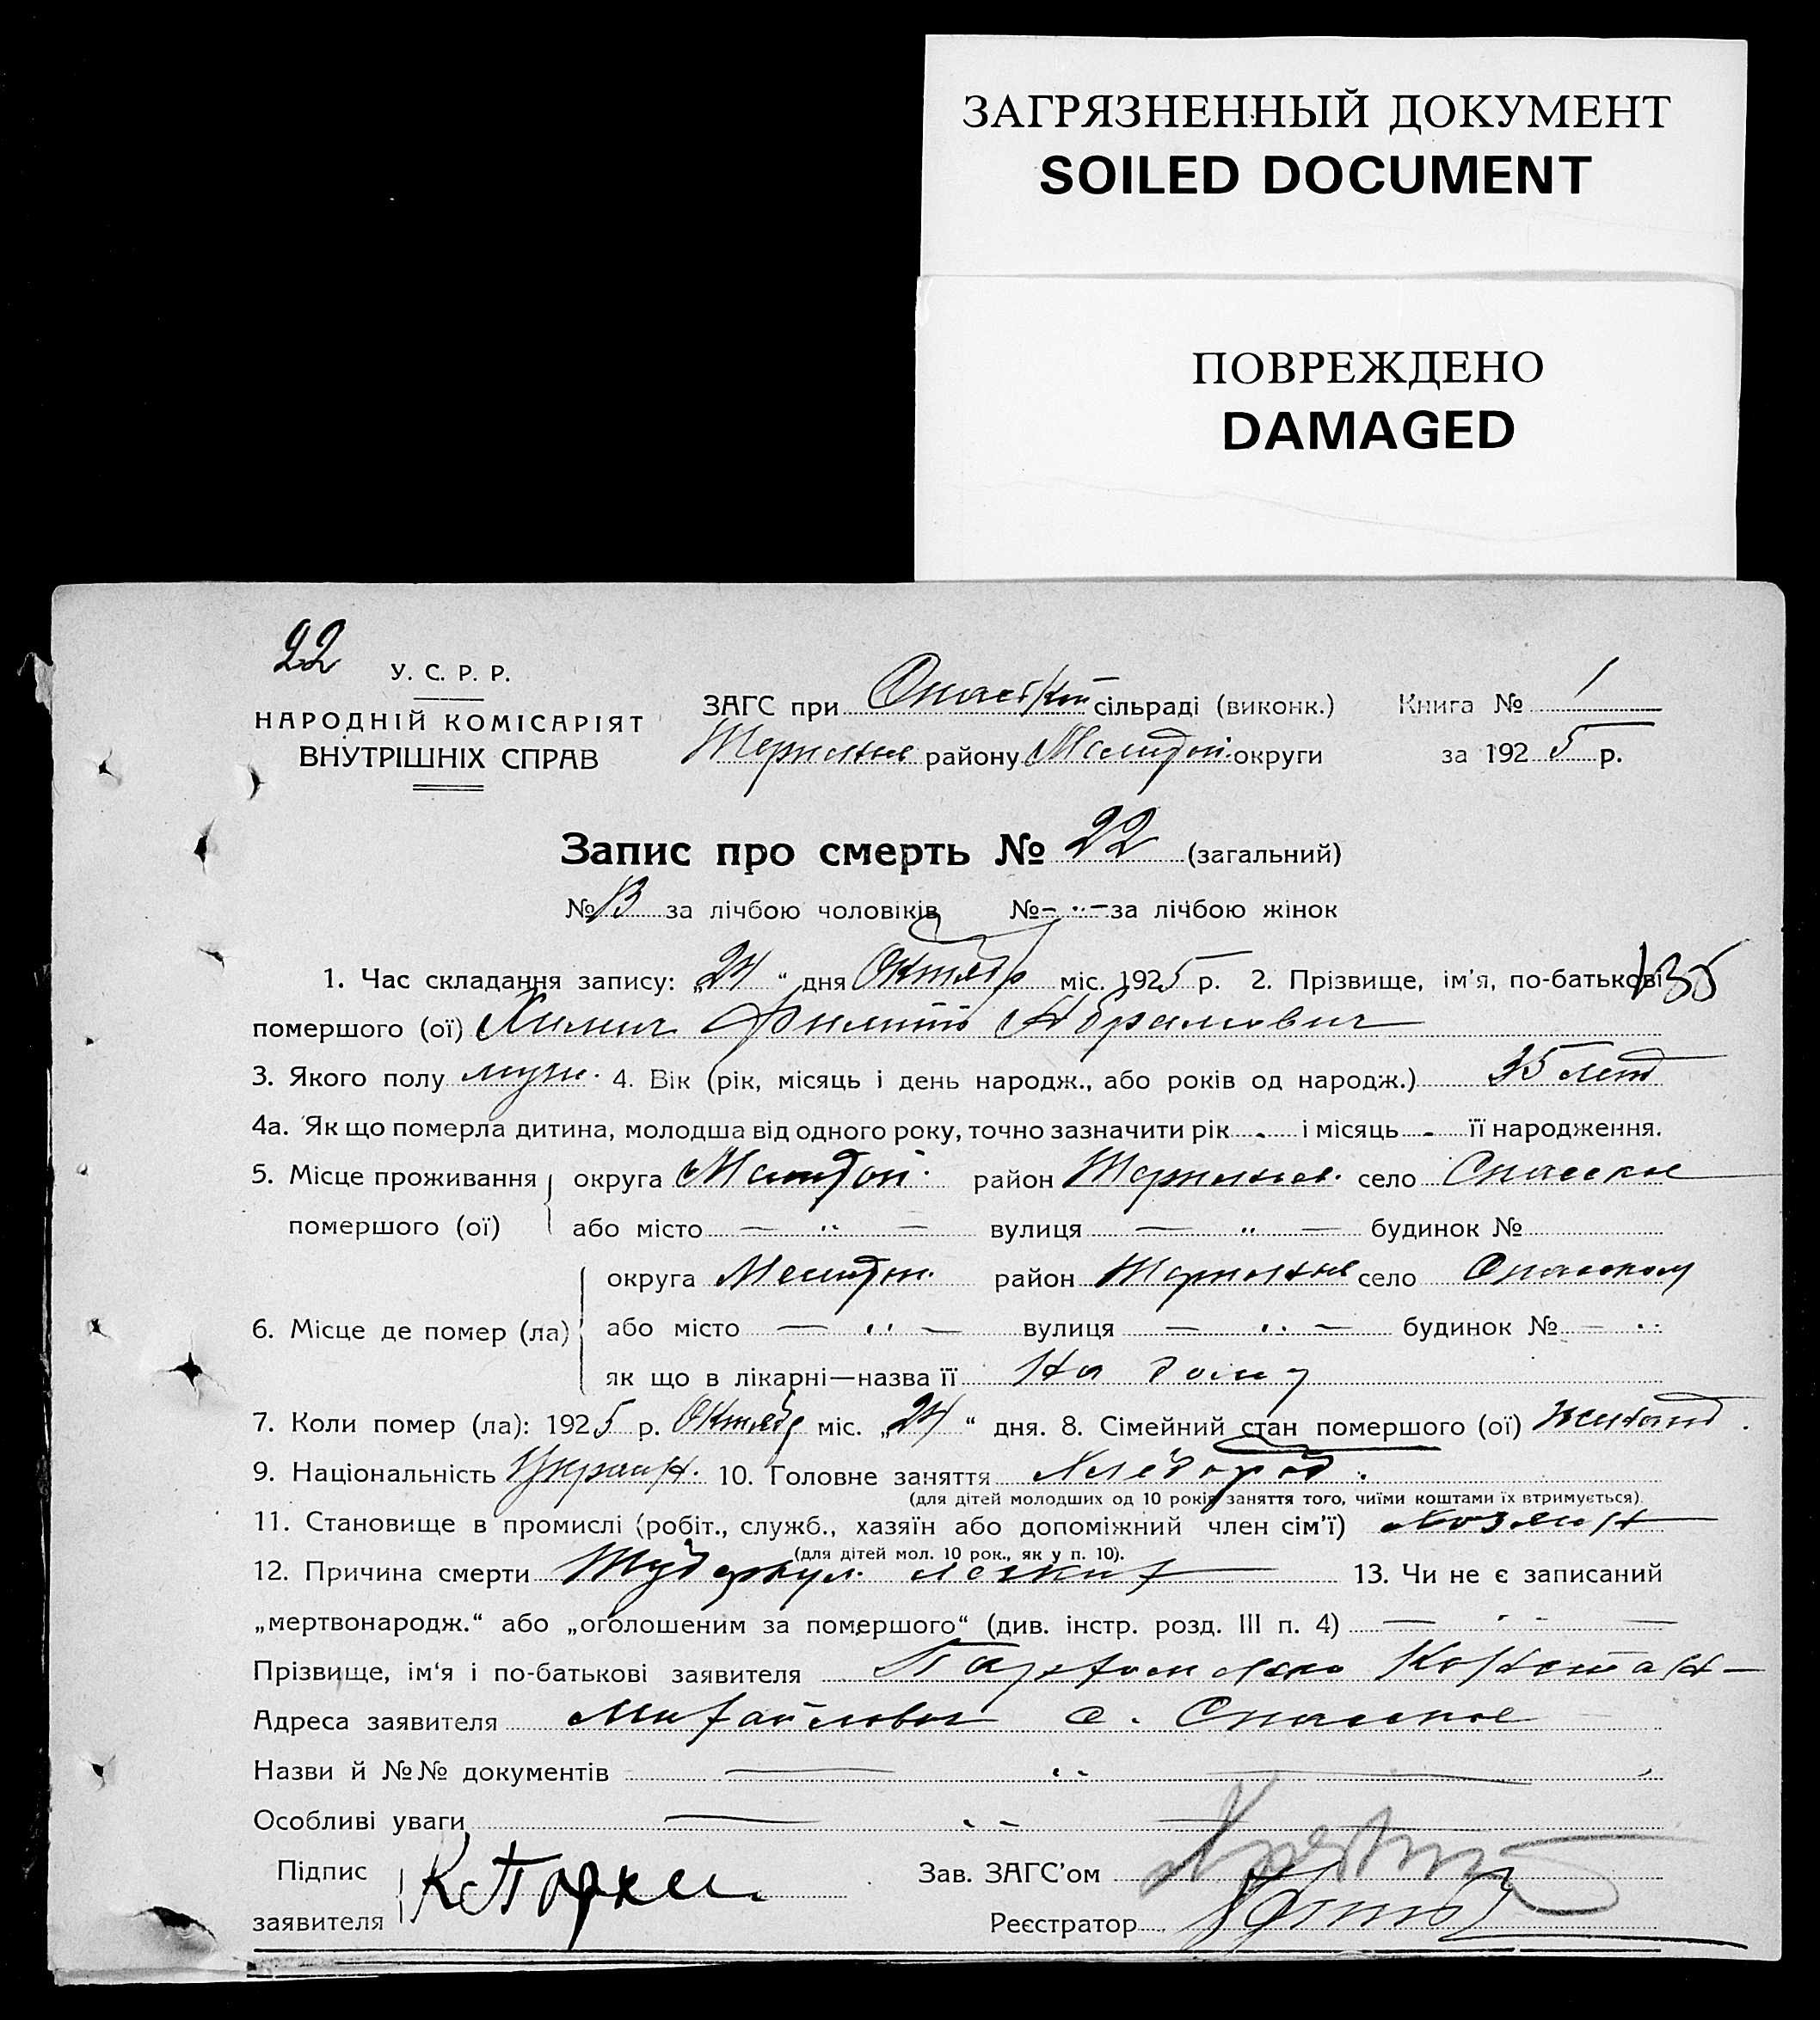 ЗАГРЯЗНЕННЫЙ ДОКУМЕНТ
SOILED DOCUMENT
ПОВРЕЖДЕНО
DAMAGED
22 У. С. Р. Р.
НАРОДНІЙ КОМІСАРІЯТ
ВНУТРІШНІХ СПРАВ
ЗАГС при Спаській сільраді (виконк.) Книга № 1
району округи за 1925 р.
Запис про смерть № 22 (загальний)
№ 13 за лічбою чоловіків № — „ — за лічбою жінок
1. Час складання запису: „24“ дня Октябр міс. 1925 р. 2. Прізвище, ім'я, по-батькові 135
помершого (ої) Химич Филипп Абрамович
3. Якого полу муж. 4. Вік (рік, місяць і день народж., або років од народж.) 35 лет
4а. Як що померла дитина, молодша від одного року, точно зазначити рік - і місяць - її народження.
5. Місце проживання округа район село Спаское
помершого (ої) або місто — „ — вулиця — „ — будинок №
округа район село Спаском
6. Місце де помер (ла) або місто — „ — вулиця — „ — будинок № — „
як що в лікарні—назва її На дому
7. Коли помер (ла): 1925 р. Октябр міс. „24“ дня. 8. Сімейний стан помершого (ої) женат.
9. Національність Украин. 10. Головне заняття Хлебороб.
(для дітей молодших од 10 років заняття того, чиїми коштами їх втримується)
11. Становище в промислі (робіт., служб., хазяїн або допоміжний член сім'ї) хозяин
(для дітей мол. 10 рок., як у п. 10).
12. Причина смерти Туберкул. легких 13. Чи не є записаний
„мертвонародж.“ або „оголошеним за помершого“ (див. інстр. розд. III п. 4) — „ —
Прізвище, ім'я і по-батькові заявителя Пархоменко Констан—
Адреса заявителя Михайлович с. Спаское
Назви й №№ документів — „ —
Особливі уваги — „ —
Підпис
заявителя К Пархом
Зав. ЗАГС'ом
Реєстратор